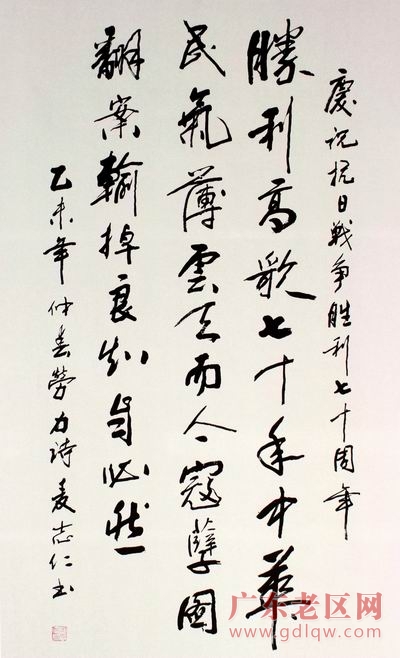 慶祝抗日戰争胜利七十周年
勝利高歌七十年中華
民氣薄雲天而今寇孽圖
翻案輸掉良知自必然
乙未年仲春勞力詩志仁书
广东老区网
www.gdlqw.com